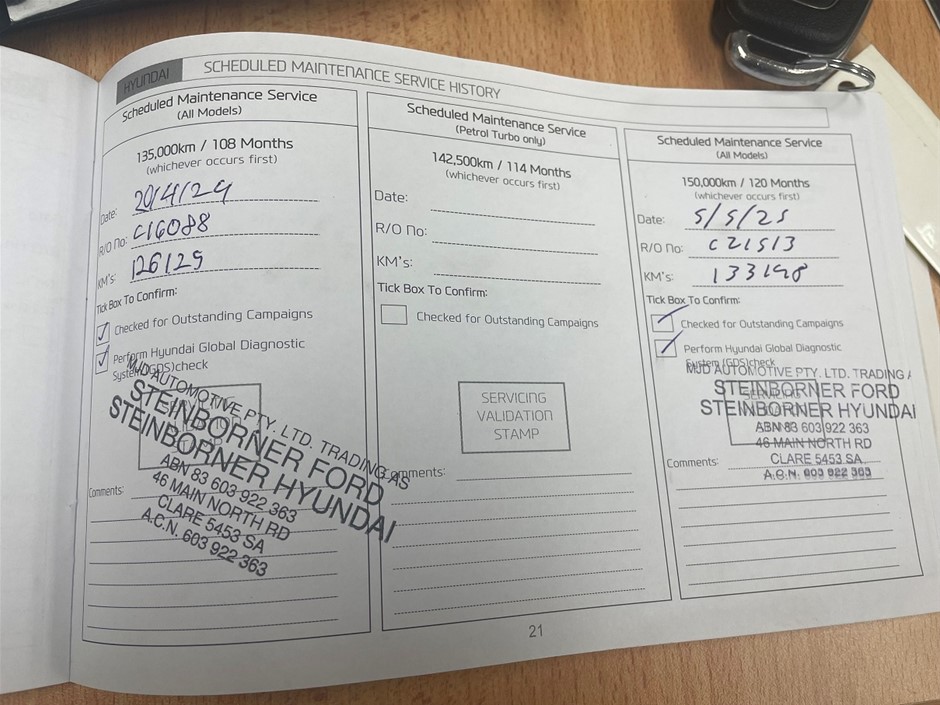 HYUNDAI SCHEDULED MAINTENANCE SERVICE HISTORY
Scheduled Maintenance Service
(All Models)
135,000km / 108 Months
(whichever occurs first)
Date: 20/4/24
R/O No: C16088
KM's: 126129
Tick Box To Confirm:
Checked for Outstanding Campaigns
Perform Hyundai Global Diagnostic
System (GDS)check
MJD AUTOMOTIVE PTY. LTD. TRADING AS
STEINBORNER FORD
STEINBORNER HYUNDAI
ABN 83 603 922 363
46 MAIN NORTH RD
CLARE 5453 SA
A.C.N. 603 922 363
Comments:
Scheduled Maintenance Service
(Petrol Turbo only)
142,500km / 114 Months
(whichever occurs first)
Date:
R/O No:
KM's:
Tick Box To Confirm:
Checked for Outstanding Campaigns
SERVICING
VALIDATION
STAMP
Comments:
Scheduled Maintenance Service
(All Models)
150,000km / 120 Months
(whichever occurs first)
Date: 5/5/25
R/O No: C21513
KM's: 133198
Tick Box To Confirm:
Checked for Outstanding Campaigns
Perform Hyundai Global Diagnostic
System (GDS)check
MJD AUTOMOTIVE PTY. LTD. TRADING
STEINBORNER FORD
STEINBORNER HYUNDAI
ABN 83 603 922 363
46 MAIN NORTH RD
CLARE 5453 SA
A.C.N. 603 922 363
Comments:
21